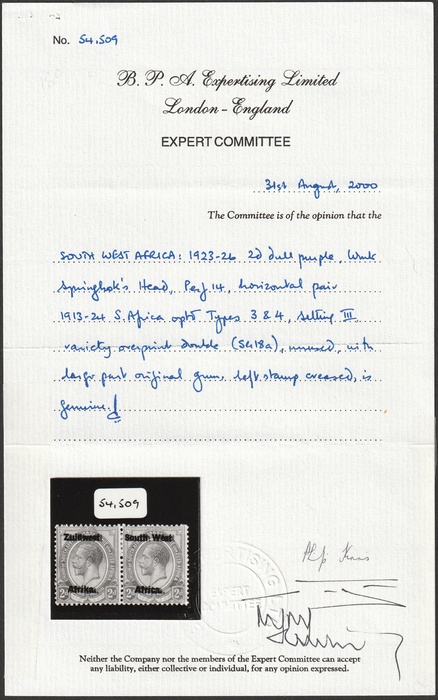 No. 54,509
B. P. A. Expertising Limited
London - England
EXPERT COMMITTEE
31st August, 2000
The Committee is of the opinion that the
SOUTH WEST AFRICA: 1923-26 2d dull purple, Wmk
Springbok's Head, Perf 14, horizontal pair
1913-24 S. Africa optd Types 3 & 4, setting III
variety overprint double (SG18a), unused, with
large part original gum, left stamp creased, is
genuine.
54,509
Zuidwest South West
Afrika. Africa.
EXPERT
COMMITTEE
Neither the Company nor the members of the Expert Committee can accept
any liability, either collective or individual, for any opinion expressed.